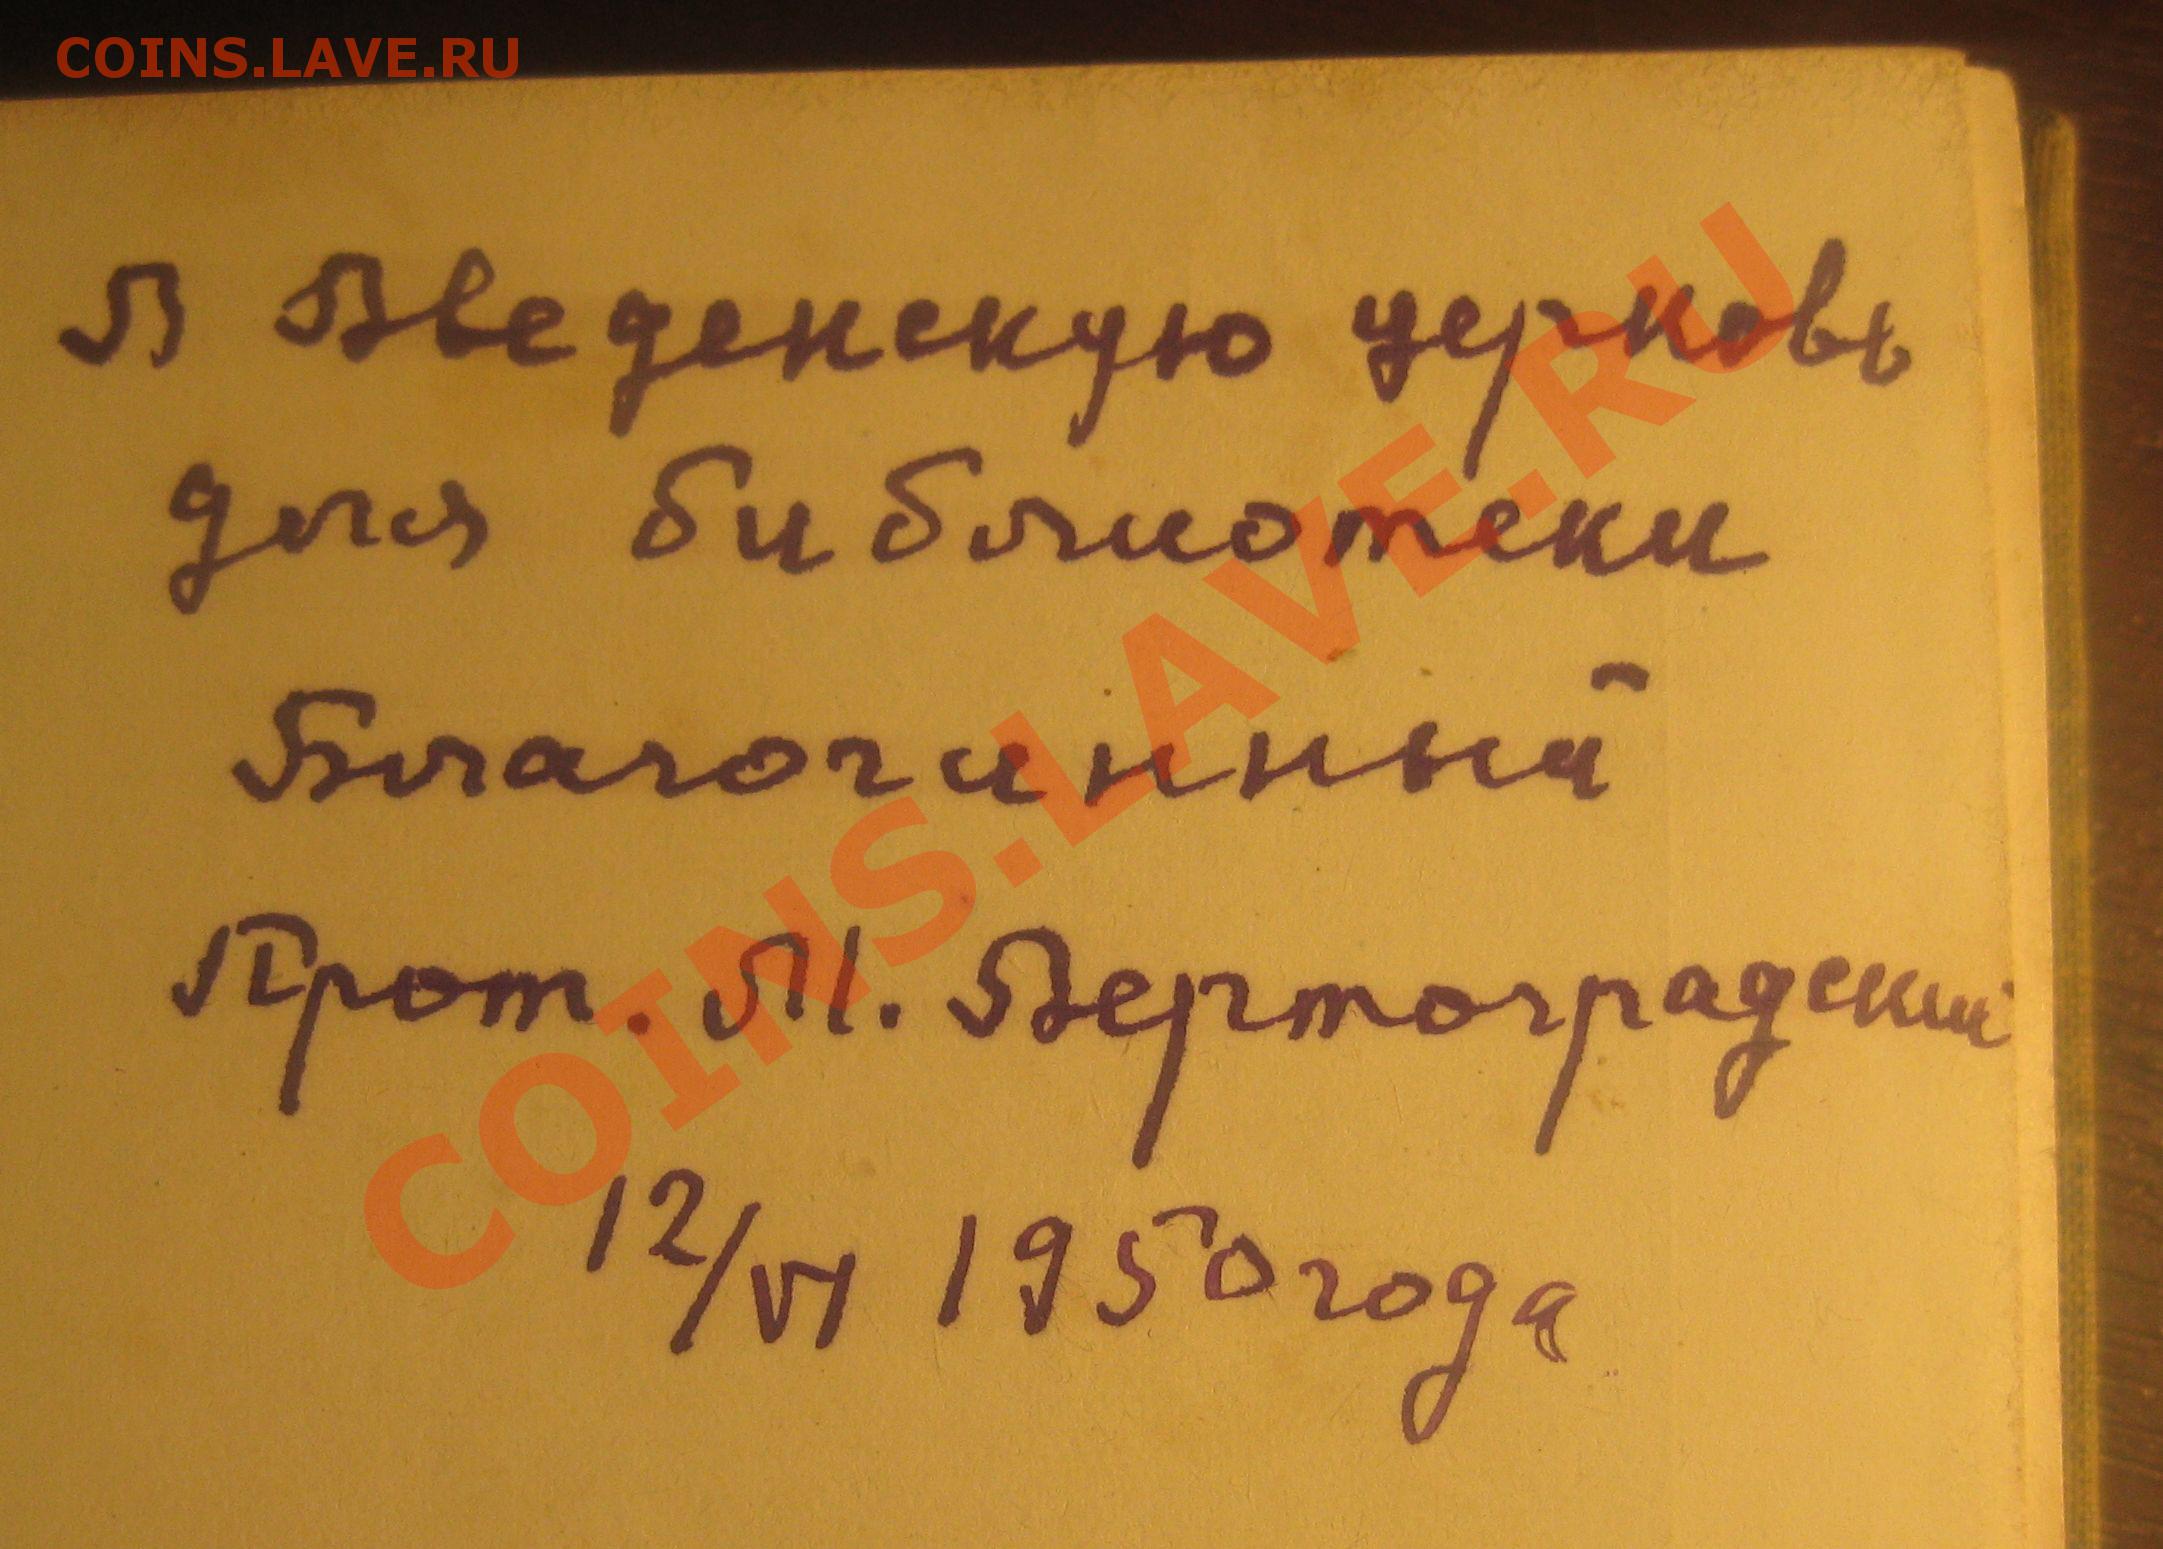 COINS.LAVE.RU
В Введенскую церковь
для библиотеки
Благочинный
Прот. М. Вертоградский
12/VI 1950 года
COINS.LAVE.RU